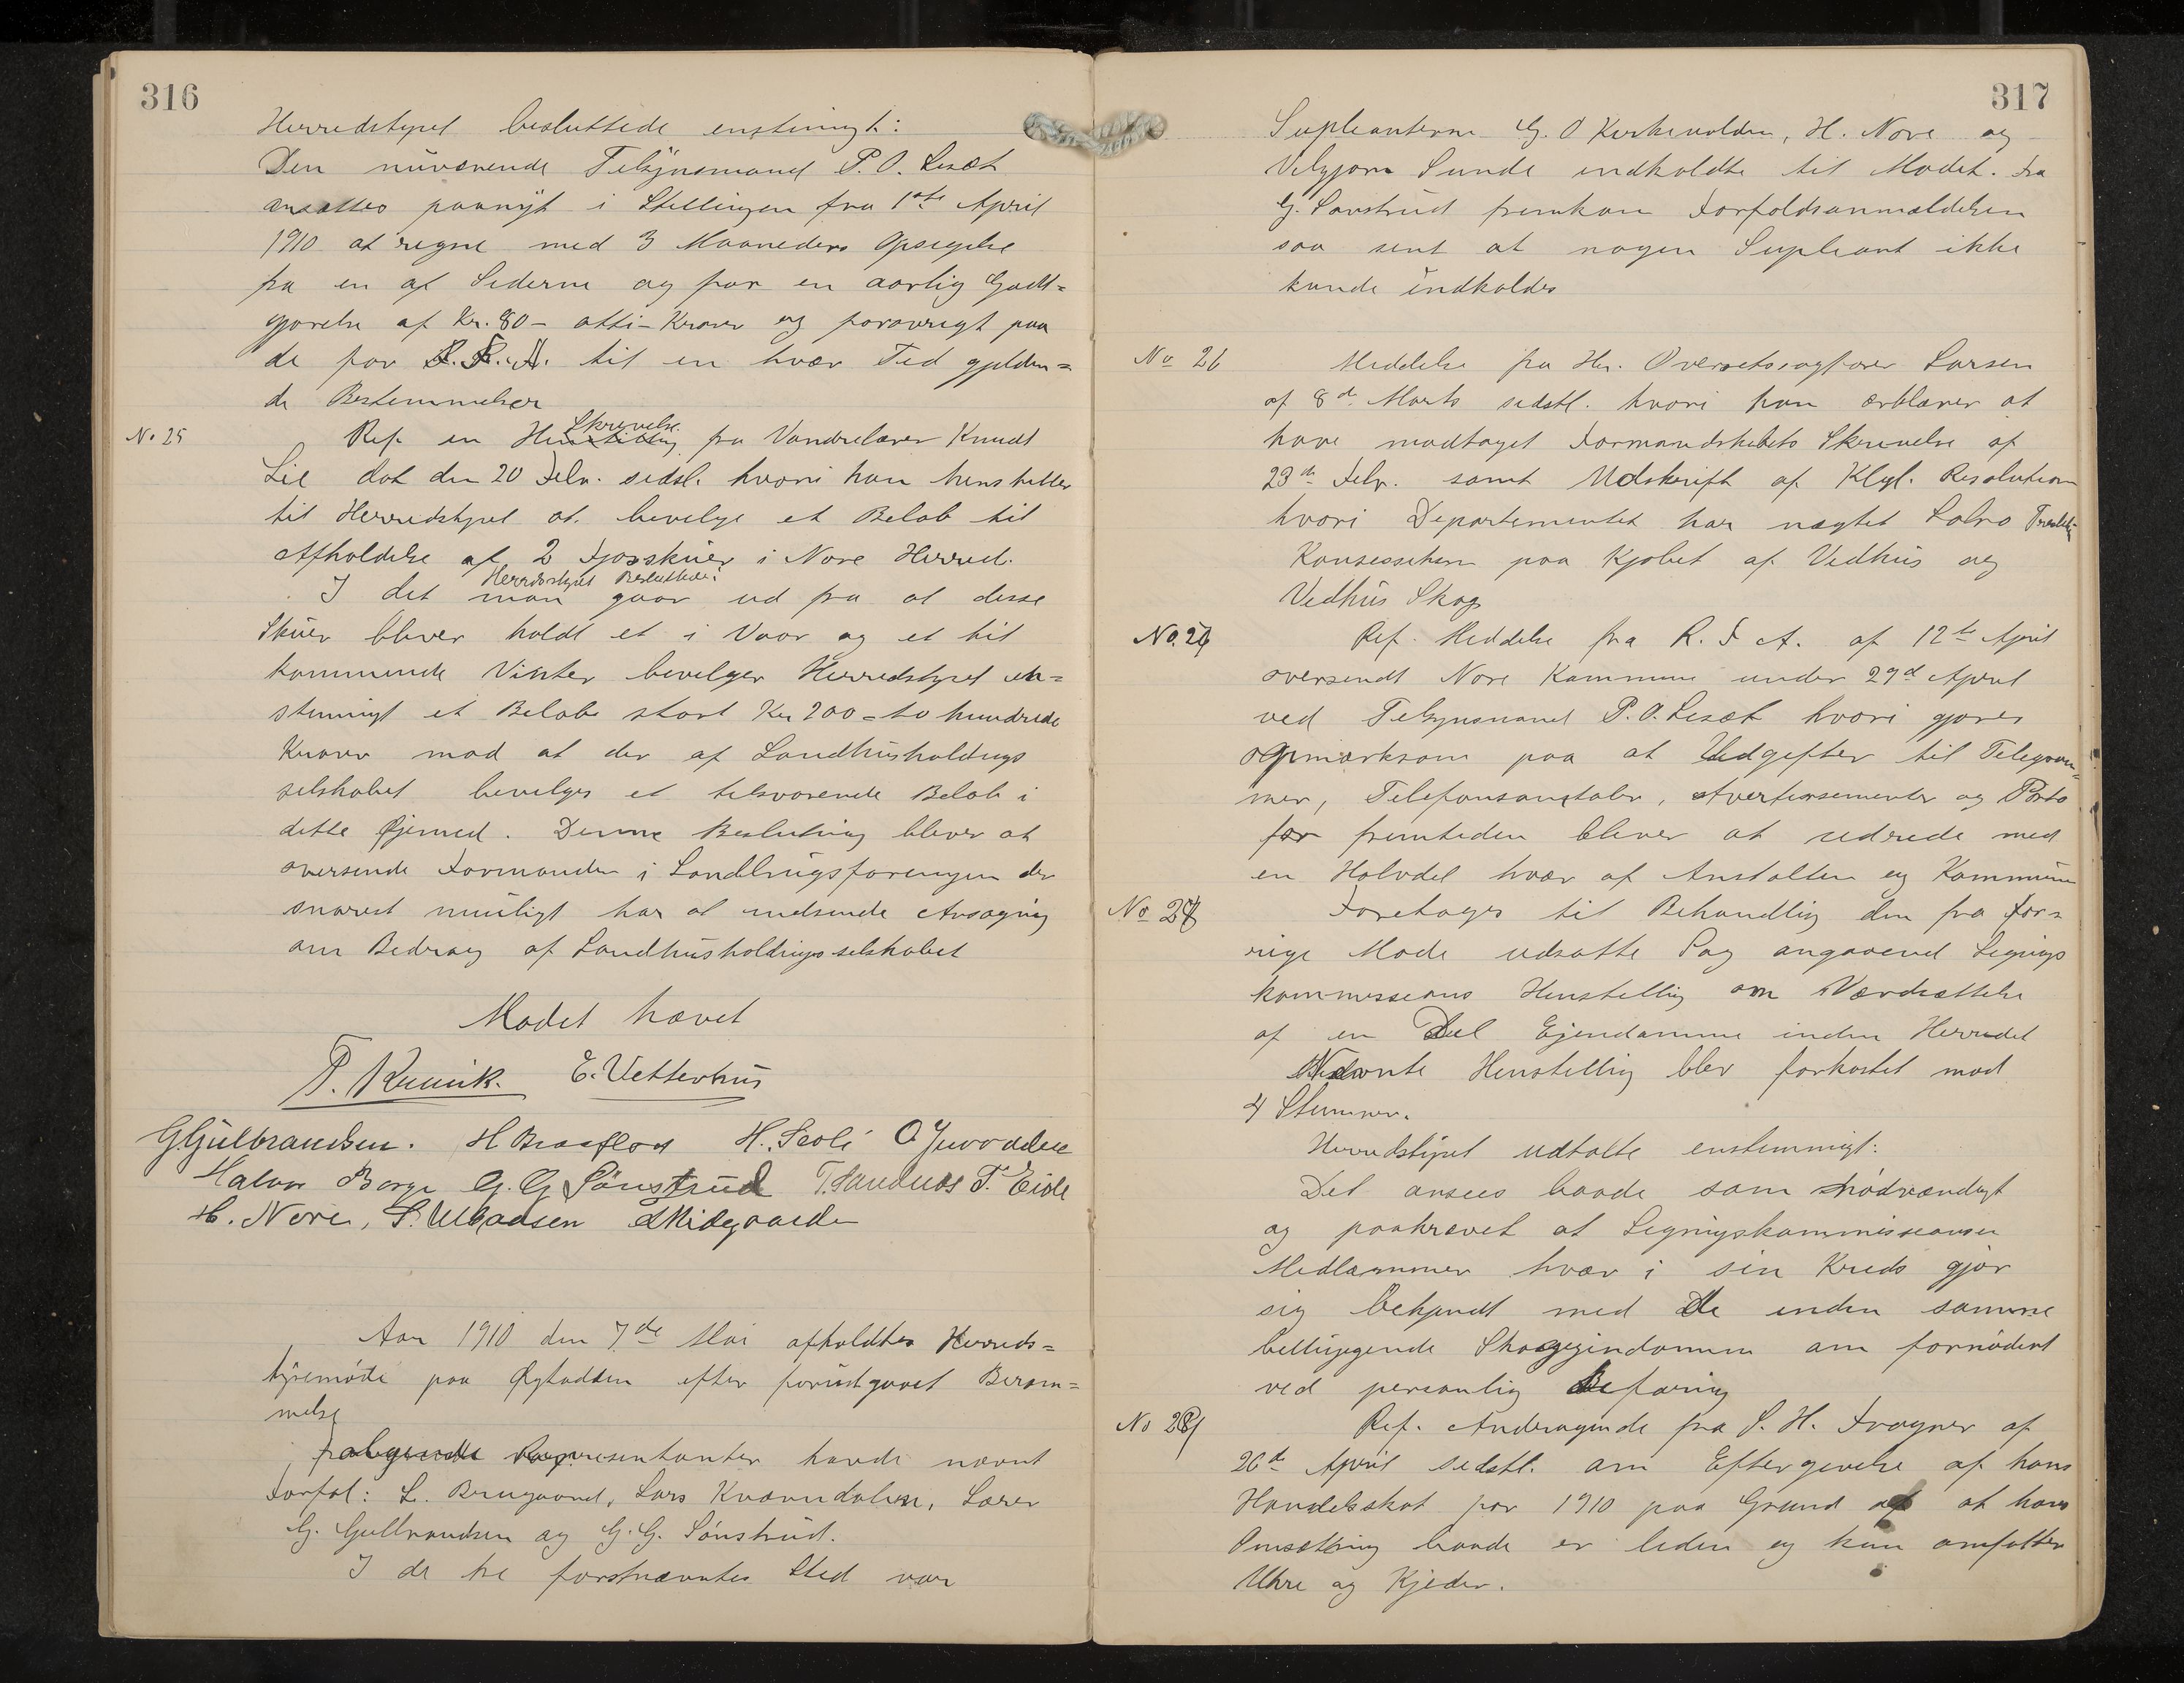 316
Herredstyret besluttede enstemigt:
Den nuværende Tilsynsmand P. O. Lisæt
ansattes paanyt i Stillingen fra 1ste April
1910 at regne med 3 Maaneders Opsigelse
fra en af Siderne og for en aarlig Godt-
gjørelse af Kr. 80 - otti - Kroner og forøvrigt paa
de for R. F. A. til en hvær Tid gjelden-
de Bestemmelser
No 25
Skrivelse
Ref. en Henstilling fra Vandrelærer Knudt
Lie dat den 20 Febr. sidstl. hvori han henstiller
til Herredstyret at bevilge et Beløb til
Afholdelse af 2 Fjosskuer i Nore Herred.
Herredstyret Besluttede:
I det man gaar ud fra at disse
Skuer bliver holdt et i Vaar og et til
kommende Vinter bevilger Herredstyret en-
stemigt et Beløb stort Kr 200 - to hundrede
Kroner mod at der af Landhusholdnings
selskabet bevilges et tilsvarende Beløb i
dette Øjemed. Denne Beslutning bliver at
oversende Formanden i Landbrugsforeningen der
snarest muligt har at indsende Ansøgning
om Bedrag af Landhusholdingsselskabet
Mødet hævet
T. Kravik. E. Vetterhus
G. Gulbrandsen. H Braaflod H. Skoli O Juvodden
Halvor Borge G. G Sønstrud T. Sandnes T. Eide
H. Nore, S. Ulbaasen Midgaarden
Aar 1910 den 7de Mai afholdtes Herreds-
tyremøde paa Øygladden efter forudgaaet Beram-
melse
følgende Representanter havde nævnt
Forfal: L. Brugaard, Lars Kværndalen, Lærer
G. Gulbrandsen og G. G. Sønstrud.
I de tre førstnævntes Sted var
317
Supleanterne G. O Kirkevolden, H. Nore og
Velgjørn Sunde indkaldte til Mødet. Fra
G. Sønstrud fremkom Forfaldsanmældelsen
saa sent at nogen Supleant ikke
kunde indkaldes
No 26
Meddelse fra Hr. Overretssagfører Larsen
af 8de Marts sidstl. hvori han ærklærer at
have modtaget Formandskabets Skrivelse af
23de Febr. samt Udskrift af Klgl. Resolution
hvori Departementet har nægtet
Konsessionen paa Kjøbet af Vedhus og
Vedhus Skog
No. 27
Ref. Meddelse fra R. F A. af 12te April
oversendt Nore Kommune under 29d April
ved Tilsynsmand P. O. Lisæt hvori gjøres
opmærksom paa at Udgifter til Telegram-
mer, Telefonsamtaler, Avertissementer og Porto
for fremtiden bliver at udrede med
en Halvdel hvær af Anstalten og Kommune
No 28
Foretages til Behandling den fra for-
rige Møde udsatte Sag angaaend Lignings
kommisseons Henstilling om Værdsættelse
af en Del Ejendomme inden Herredet
Nævnte Henstilling blev forkastet mod
4 Stemmer.
Herredstyret udtalte enstemmigt:
Det ansees baade som nødvændigt
og paakrævet at Ligningskommisseonens
Medlæmmer hvær i sin Kreds gjør
sig bekjendt med de inden samme
beliggende Skogejendomme om fornødent
ved personlig Befaring
No 29
Ref. Andragende fra S. H. Frogner af
26de April sidstl. om Eftergivelse af hans
Handelsskat for 1910 paa Grund af at hans
Omsætning baade er liden og kun omfatter
Uhre og Kjeder.